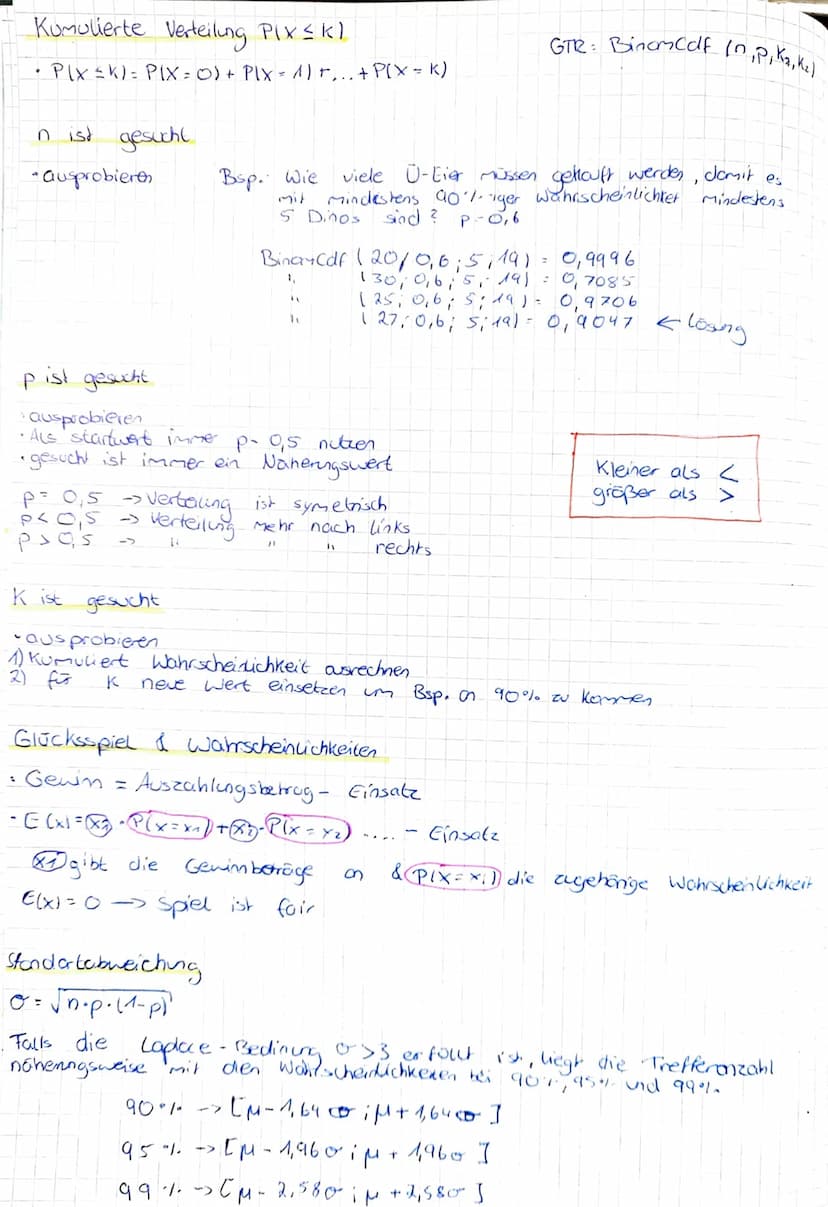 Kumulierte Verteilung P(X ≤ k)
GTR: BinomCdf (n,p,k₁,k₂)
• P(X ≤ k) = P(X = 0) + P(X = 1) + ... + P(X = k)
n ist gesucht
• ausprobieren
Bsp.: Wie viele Ü-Eier müssen gekauft werden, damit es
mit mindestens 90%iger Wahrscheinlichkeit mindestens
5 Dinos sind? p=0,6
BinomCdf (20/0,6;5;19) = 0,9996
" (30;0,6;5;19) = 0,7085
" (25;0,6;5;19) = 0,9706
" (27;0,6;5;19) = 0,9047 ← Lösung
p ist gesucht
• ausprobieren
• Als Startwert immer p= 0,5 nutzen
• gesucht ist immer ein Näherungswert
Kleiner als <
größer als >
p = 0,5 → Verteilung ist symetrisch
p < 0,5 → Verteilung mehr nach links
p > 0,5 → " " " rechts
K ist gesucht
• ausprobieren
1) Kumuliert Wahrscheinlichkeit ausrechnen
2) für K neue Wert einsetzen um Bsp. an 90% zu kommen
Glücksspiel & Wahrscheinlichkeiten
• Gewinn = Auszahlungsbetrag - Einsatz
• E(x) = x₁ · P(x = x₁) + x₂ · P(x = x₂) .... - Einsatz
x₁ gibt die Gewinnbeträge an & P(X = xᵢ) die zugehörige Wahrscheinlichkeit
E(x) = 0 → Spiel ist fair
Standartabweichung
σ = √n·p·(1-p)
Falls die Laplace-Bedinung σ>3 erfüllt ist, liegt die Trefferanzahl
näherungsweise mit den Wahrscheinlichkeiten bei 90%, 95% und 99%.
90% → [μ - 1,64σ ; μ + 1,64σ]
95% → [μ - 1,96σ ; μ + 1,96σ]
99% → [μ - 2,58σ ; μ + 2,58σ]